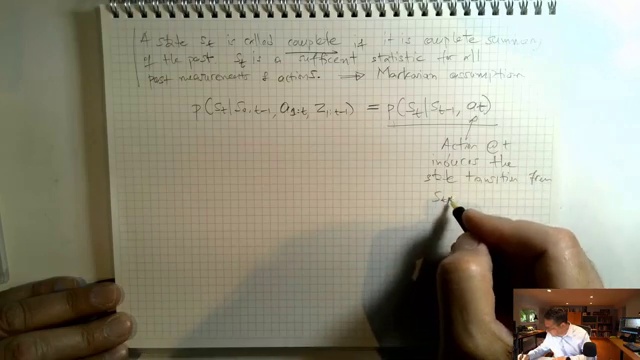 A state St is called complete if it is complete summary
of the past St is a sufficent statistic for all
past measurements & actions. ⟹ Markovian assumption
p(St | S0:t-1, a1:t, Z1:t-1) = p(St | St-1, at)
Action @ t
induces the
state transition from
St